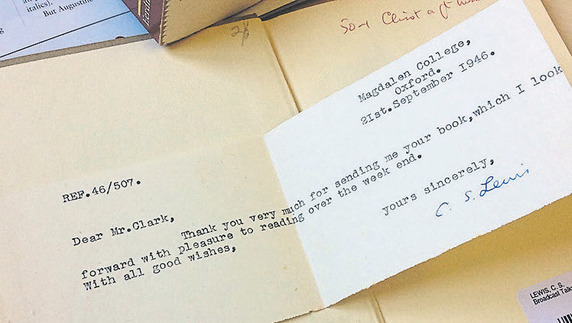 italics).
But Augustine
28
Magdalen College,
Oxford.
21st.September 1946.
REF.46/507.
Dear Mr.Clark,
Thank you very much for sending me your book,which I look
forward with pleasure to reading over the week end.
With all good wishes,
yours sincerely,
C. S. Lewis
LEWIS, C. S.
Broadcast Talks